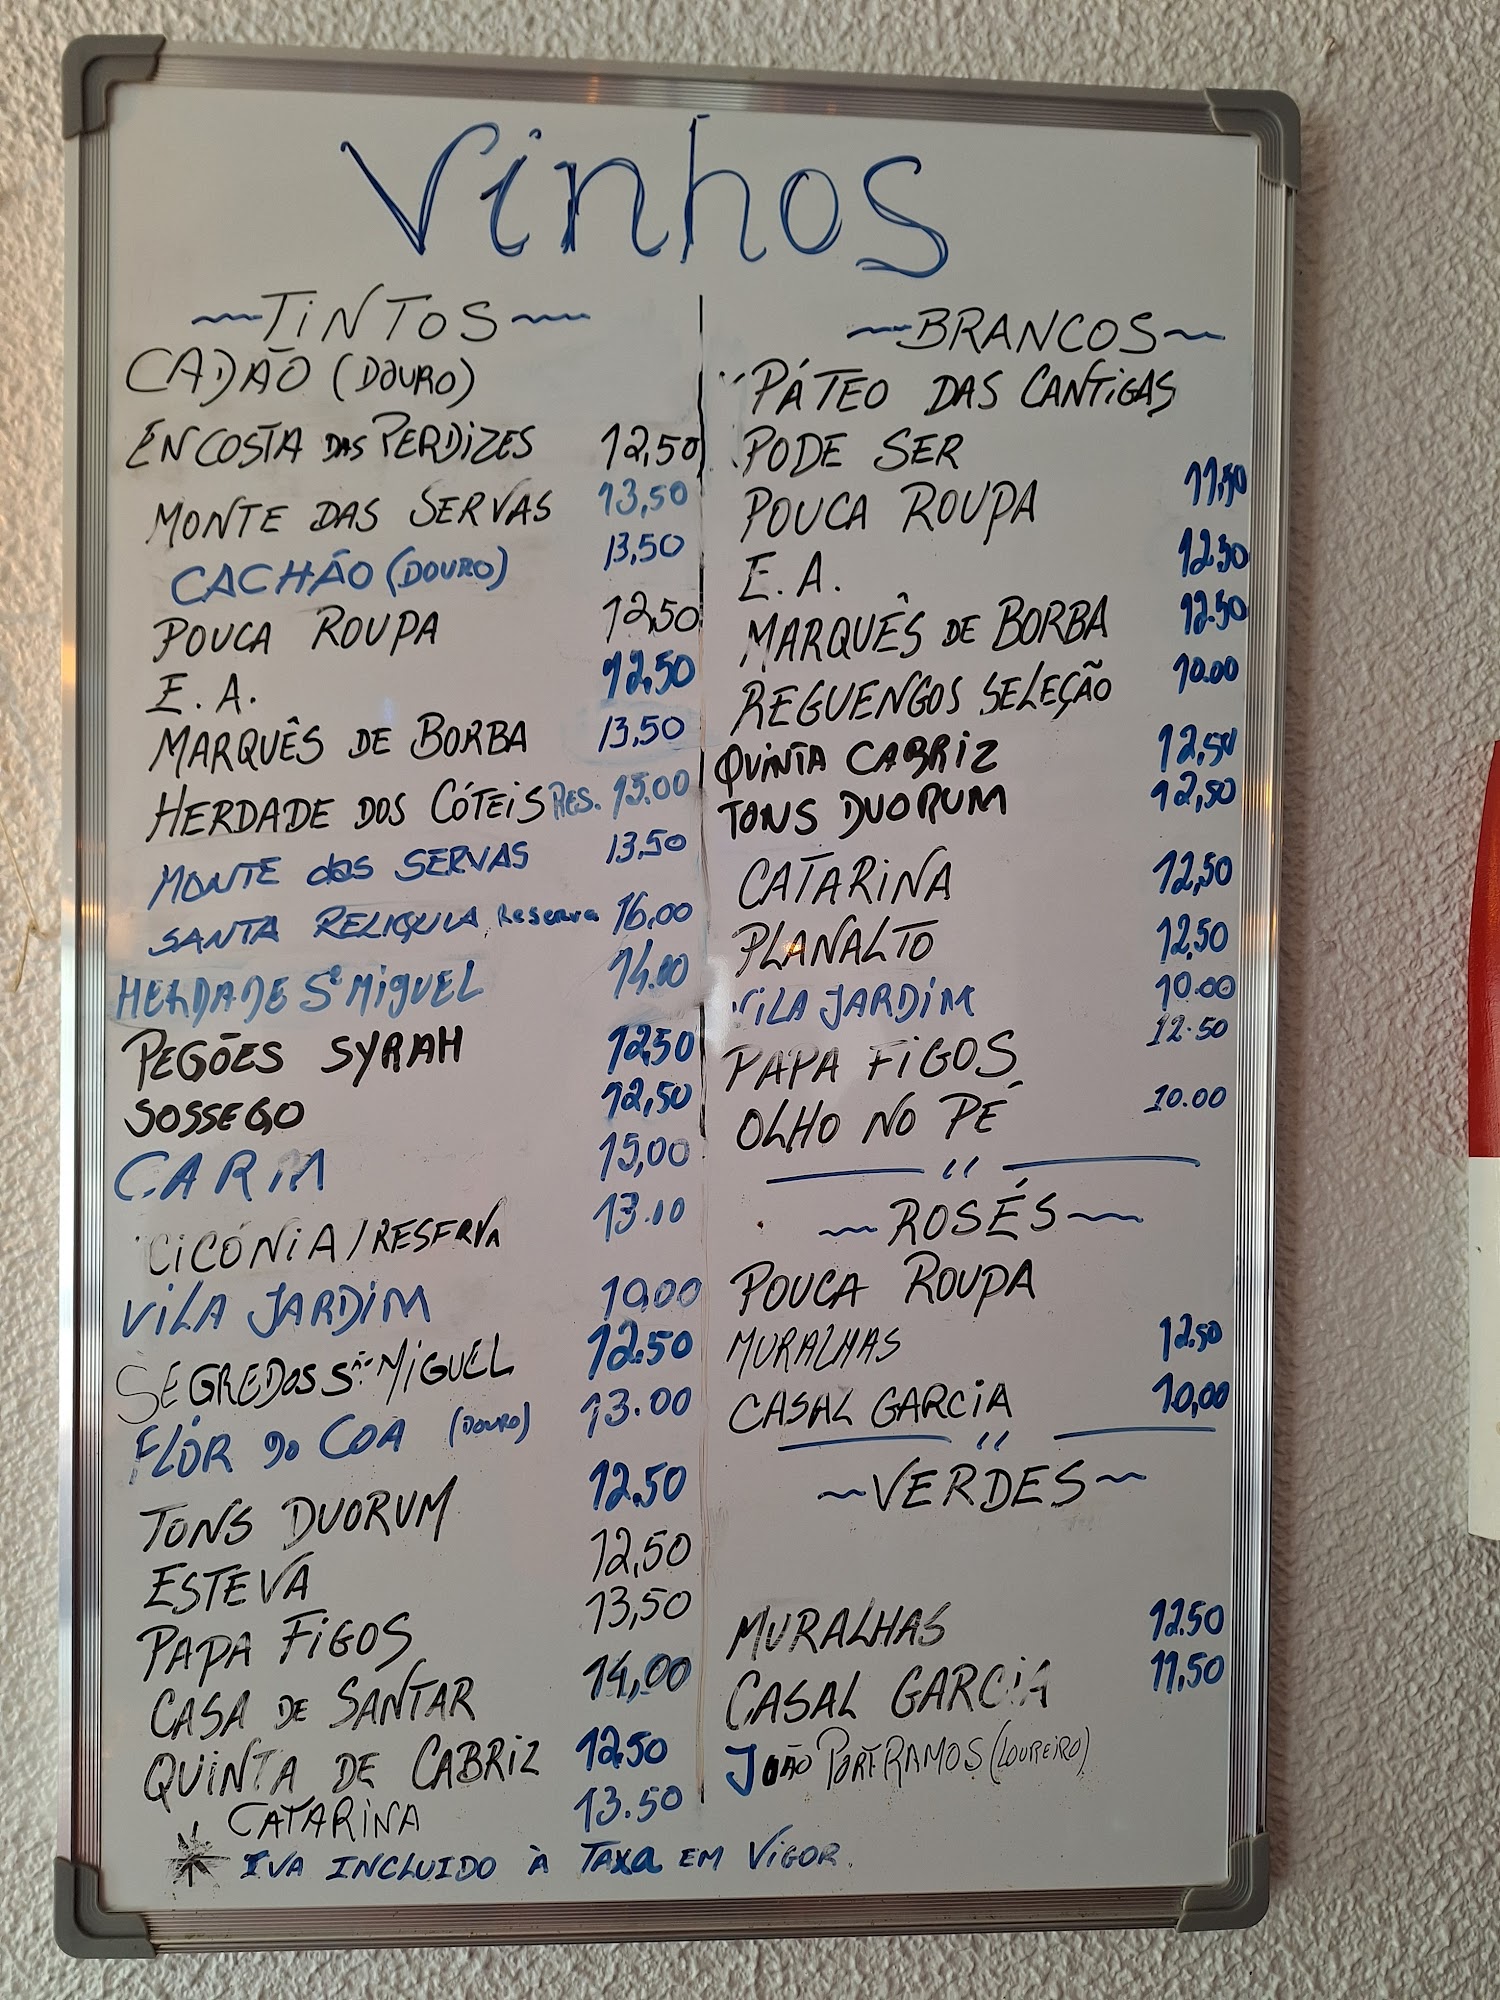 Vinhos
~TINTOS~
CADÃO (DOURO)
ENCOSTA DAS PERDIZES 12,50
MONTE DAS SERVAS 13,50
CACHÃO (DOURO) 13,50
POUCA ROUPA 12,50
E.A. 12,50
MARQUÊS DE BORBA 13,50
HERDADE DOS CÓTEIS RES. 15.00
MONTE das SERVAS 13.50
SANTA RELIQUIA Reserva 16,00
HERDADE Sº MIGUEL 14.00
PEGÕES SYRAH 12,50
SOSSEGO 12,50
CARM 15,00
CICÓNIA / RESERVA 13.00
VILA JARDIM 10,00
SEGREDOS Sº MIGUEL 12.50
FLÔR do COA (DOURO) 13.00
TONS DUORUM 12.50
ESTEVA 12,50
PAPA FIGOS 13,50
CASA DE SANTAR 14,00
QUINTA DE CABRIZ 12.50
CATARINA 13.50
~BRANCOS~
PÁTEO DAS CANTIGAS
PODE SER
POUCA ROUPA 11,50
E.A. 12.50
MARQUÊS DE BORBA 12.50
REGUENGOS SELEÇÃO 10.00
QUINTA CABRIZ 12,50
TONS DUORUM 12,50
CATARINA 12,50
PLANALTO 12,50
VILA JARDIM 10.00
PAPA FIGOS 12.50
OLHO NO PÉ 10.00
~ROSÉS~
POUCA ROUPA
MURALHAS 12.50
CASAL GARCIA 10,00
~VERDES~
MURALHAS 12.50
CASAL GARCIA 11,50
JOÃO PORT. RAMOS (LOUREIRO)
* IVA INCLUIDO À TAXA EM VIGOR.